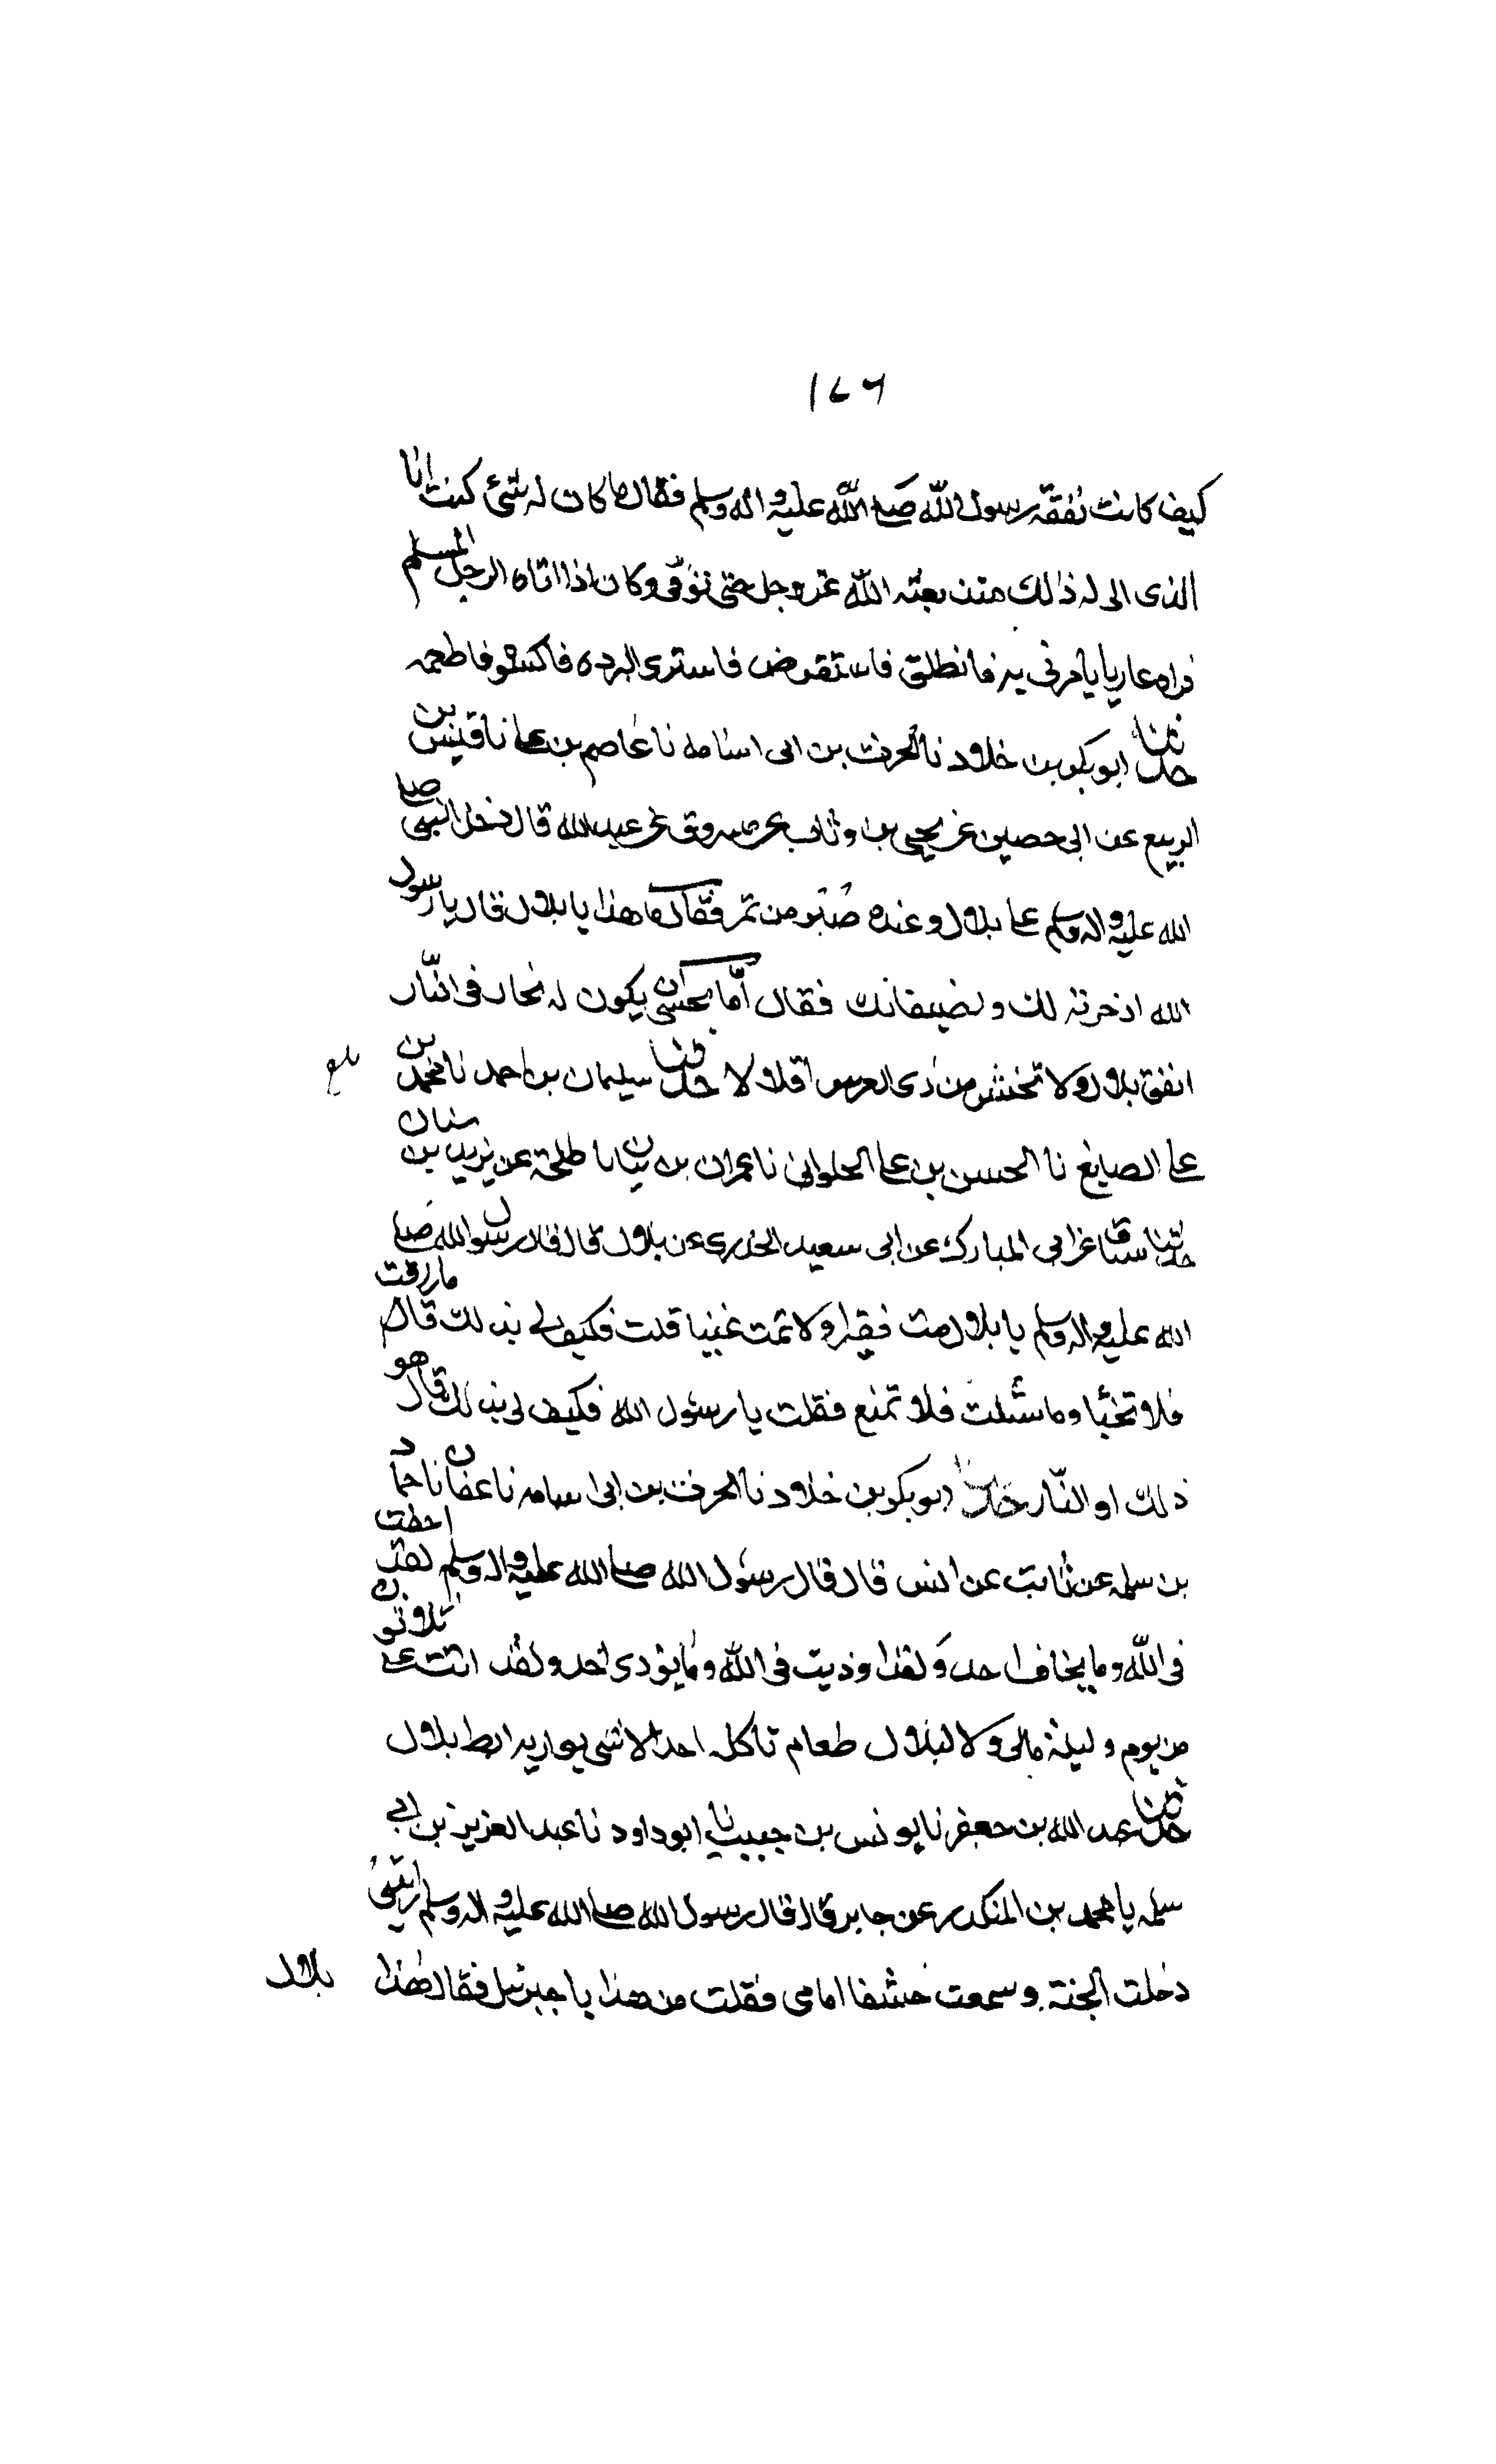 ١٧٦
كيف كانت نفقة رسول الله صلى الله عليه واله وسلم فقال ما كان له شئ كنت انا
الذى الى له ذالك منذ بعثه الله عز وجل حتى توفى وكان اذا اتاه الرجل المسلم
فراه عاريا يامرنى به فانطلق فاستقرض فاشترى البرده فاكسوه فاطعمه
حدثنا ابو بكر بن خلاد نا الحرث بن ابى اسامه نا عاصم بن على نا قيس بن
الربيع عن ابى حصين عن يحيى بن وثاب عن مسروق عن عبد الله قال دخل النبى صلى
الله عليه واله وسلم على بلال وعنده صبر من تمر فقال ما هذا يا بلال قال يا رسول
الله اذخرته لك ولضيفانك فقال اما تخشى ان يكون له بخار فى النار
انفق بلال ولا تخش من ذى العرش اقلالا حدثنا سليمان بن احمد نا محمد بن
بلغ
على الصايغ نا الحسن بن على الحلوانى نا عمران بن ابان نا طلحة عن يزيد بن سنان
عن ابى المبارك عن ابى سعيد الخدرى عن بلال قال قال رسول الله صلى
الله عليه واله وسلم يا بلال مت فقيرا ولا تمت غنيا قلت فكيف لى بذلك قال ما رزقت
فلا تخبا وما سئلت فلا تمنع فقلت يا رسول الله فكيف لى بذلك قال هو
ذلك او النار حدثنا ابو بكر بن خلاد نا الحرث بن ابى اسامه نا عفان نا حماد
بن سلمه عن ثابت عن انس قال قال رسول الله صلى الله عليه واله وسلم لقد اخفت
فى الله وما يخاف احد ولقد اوذيت فى الله وما يؤذى احد ولقد اتت على ثلاثون
من يوم وليلة مالى ولا لبلال طعام تاكله احد الا شى يواريه ابط بلال
حدثنا عبد الله بن جعفر نا يونس بن حبيب نا ابو داود نا عبد العزيز بن ابى
سلمه يا محمد بن المنكدر عن جابر قال قال رسول الله صلى الله عليه واله وسلم اريتنى
دخلت الجنة وسمعت خشفا امامى فقلت من هذا يا جبرئيل فقال هذا
بلال